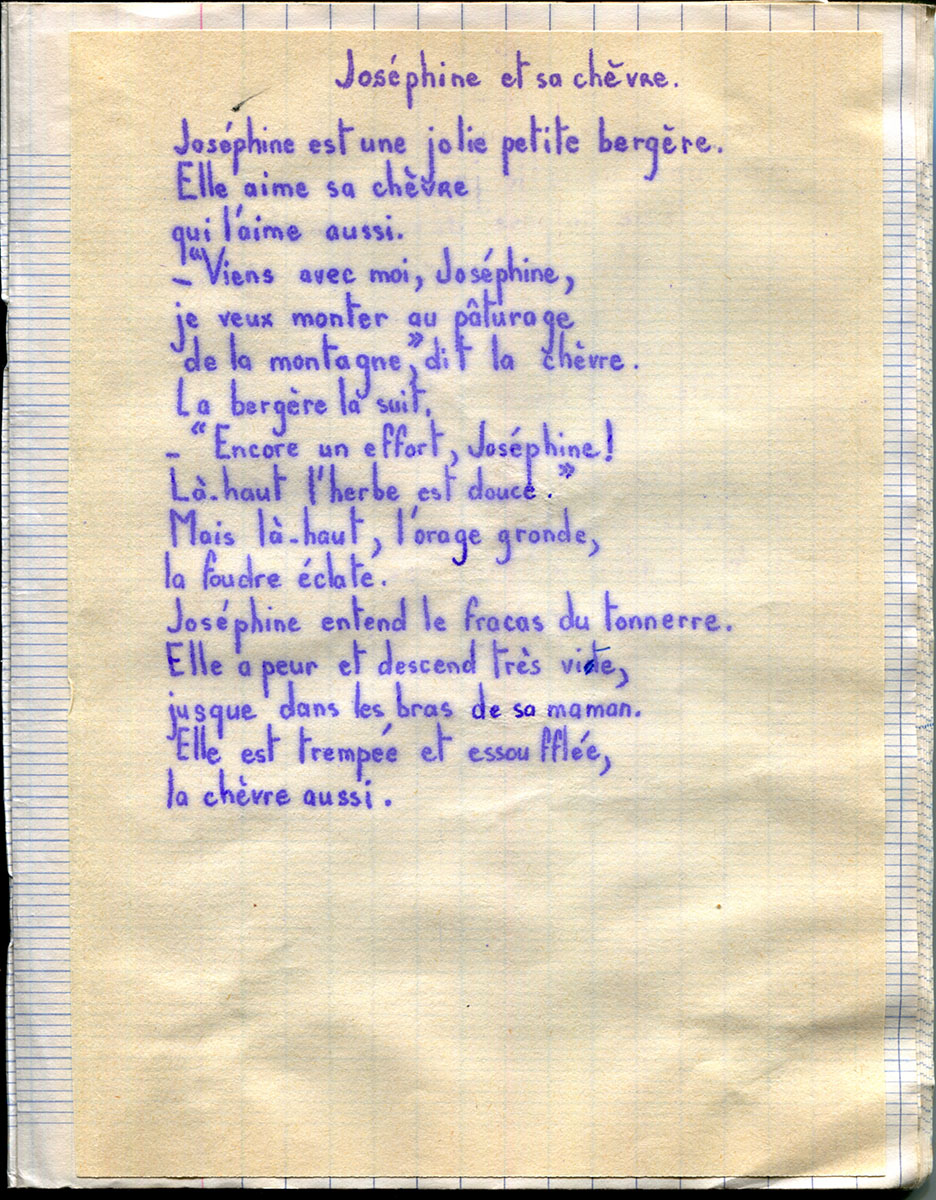 Joséphine et sa chèvre.
Joséphine est une jolie petite bergère.
Elle aime sa chèvre
qui l'aime aussi.
- "Viens avec moi, Joséphine,
je veux monter au pâturage
de la montagne", dit la chèvre.
La bergère la suit.
- "Encore un effort, Joséphine!
Là-haut l'herbe est douce."
Mais là-haut, l'orage gronde,
la foudre éclate.
Joséphine entend le fracas du tonnerre.
Elle a peur et descend très vite,
jusque dans les bras de sa maman.
Elle est trempée et essoufflée,
la chèvre aussi.